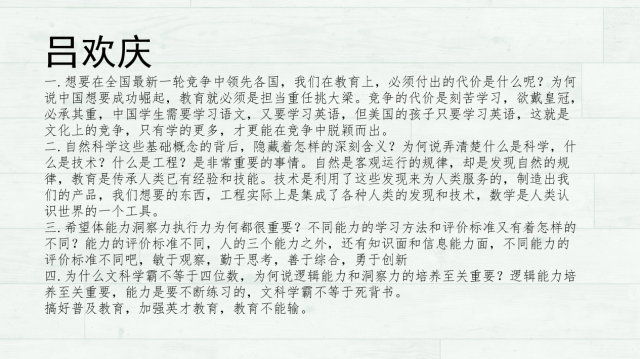 吕欢庆
一.想要在全国最新一轮竞争中领先各国，我们在教育上，必须付出的代价是什么呢？为何
说中国想要成功崛起，教育就必须是担当重任挑大梁。竞争的代价是刻苦学习，欲戴皇冠，
必承其重，中国学生需要学习语文，又要学习英语，但美国的孩子只要学习英语，这就是
文化上的竞争，只有学的更多，才更能在竞争中脱颖而出。
二.自然科学这些基础概念的背后，隐藏着怎样的深刻含义？为何说弄清楚什么是科学，什
么是技术？什么是工程？是非常重要的事情。自然是客观运行的规律，却是发现自然的规
律，教育是传承人类已有经验和技能。技术是利用了这些发现来为人类服务的，制造出我
们的产品，我们想要的东西，工程实际上是集成了各种人类的发现和技术，数学是人类认
识世界的一个工具。
三.希望体能力洞察力执行力为何都很重要？不同能力的学习方法和评价标准又有着怎样的
不同？能力的评价标准不同，人的三个能力之外，还有知识面和信息能力面，不同能力的
评价标准不同吧，敏于观察，勤于思考，善于综合，勇于创新
四.为什么文科学霸不等于四位数，为何说逻辑能力和洞察力的培养至关重要？逻辑能力培
养至关重要，能力是要不断练习的，文科学霸不等于死背书。
搞好普及教育，加强英才教育，教育不能输。